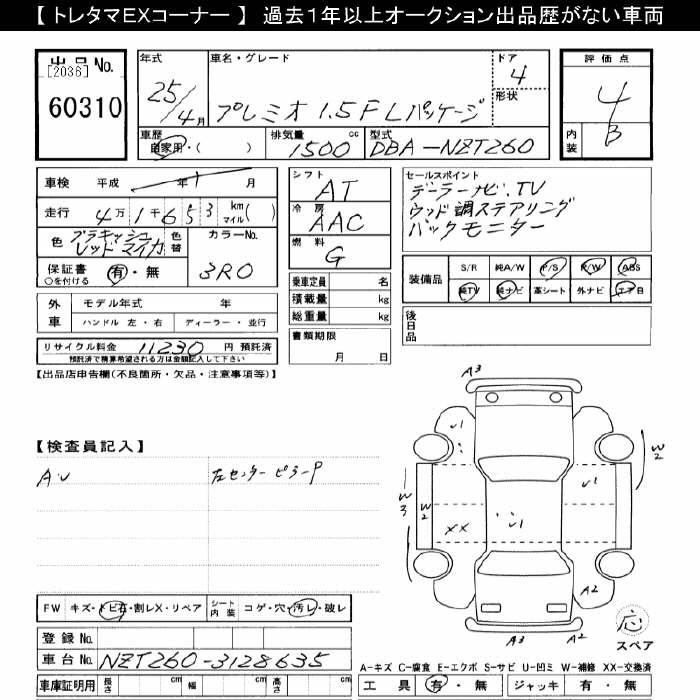 【 トレタマEXコーナー 】 過去１年以上オークション出品歴がない車両
出品 No.
[2036]
60310
年式
25/4月
車名・グレード
プレミオ 1.5F Lパッケージ
ドア
4
形状
評価点
4
内装
B
車歴
自家用・(　　　)
排気量
1500 cc
型式
DBA-NZT260
車検 平成 年 月
走行 4万1千653 km マイル( )
色 ブラキッシュレッドマイカ
色替
カラーNo.
3R0
保証書 有・無
○を付ける
外車
モデル年式 年
ハンドル 左・右
ディーラー・並行
リサイクル料金 11230 円 預託済
預託済で精算希望される方は金額記入して下さい
シフト
AT
冷房
AAC
燃料
G
乗車定員 名
積載量 kg
総重量 kg
書類期限
月 日
セールスポイント
ディーラーナビ、TV
ウッド調ステアリング
バックモニター
装備品
S/R 純A/W P/S P/W ABS
純TV 純ナビ 革シート 外ナビ エアB
後日品
【出品店申告欄(不良箇所・欠品・注意事項等)】
【検査員記入】
A・U
左センターピラーP
A3
U1
W2
U1
W3
W2
XX
U1
A2
A2
A3
応
スペア
FW キズ・トビ石・割レX・リペア
シート内装 コゲ・穴・汚レ・破レ
登録 No.
車台 No. NZT260-3128635
車庫証明用 長さ cm 幅 cm 高さ cm
A-キズ C-腐食 E-エクボ S-サビ U-凹ミ W-補修 XX-交換済
工具 有・無 ジャッキ 有・無